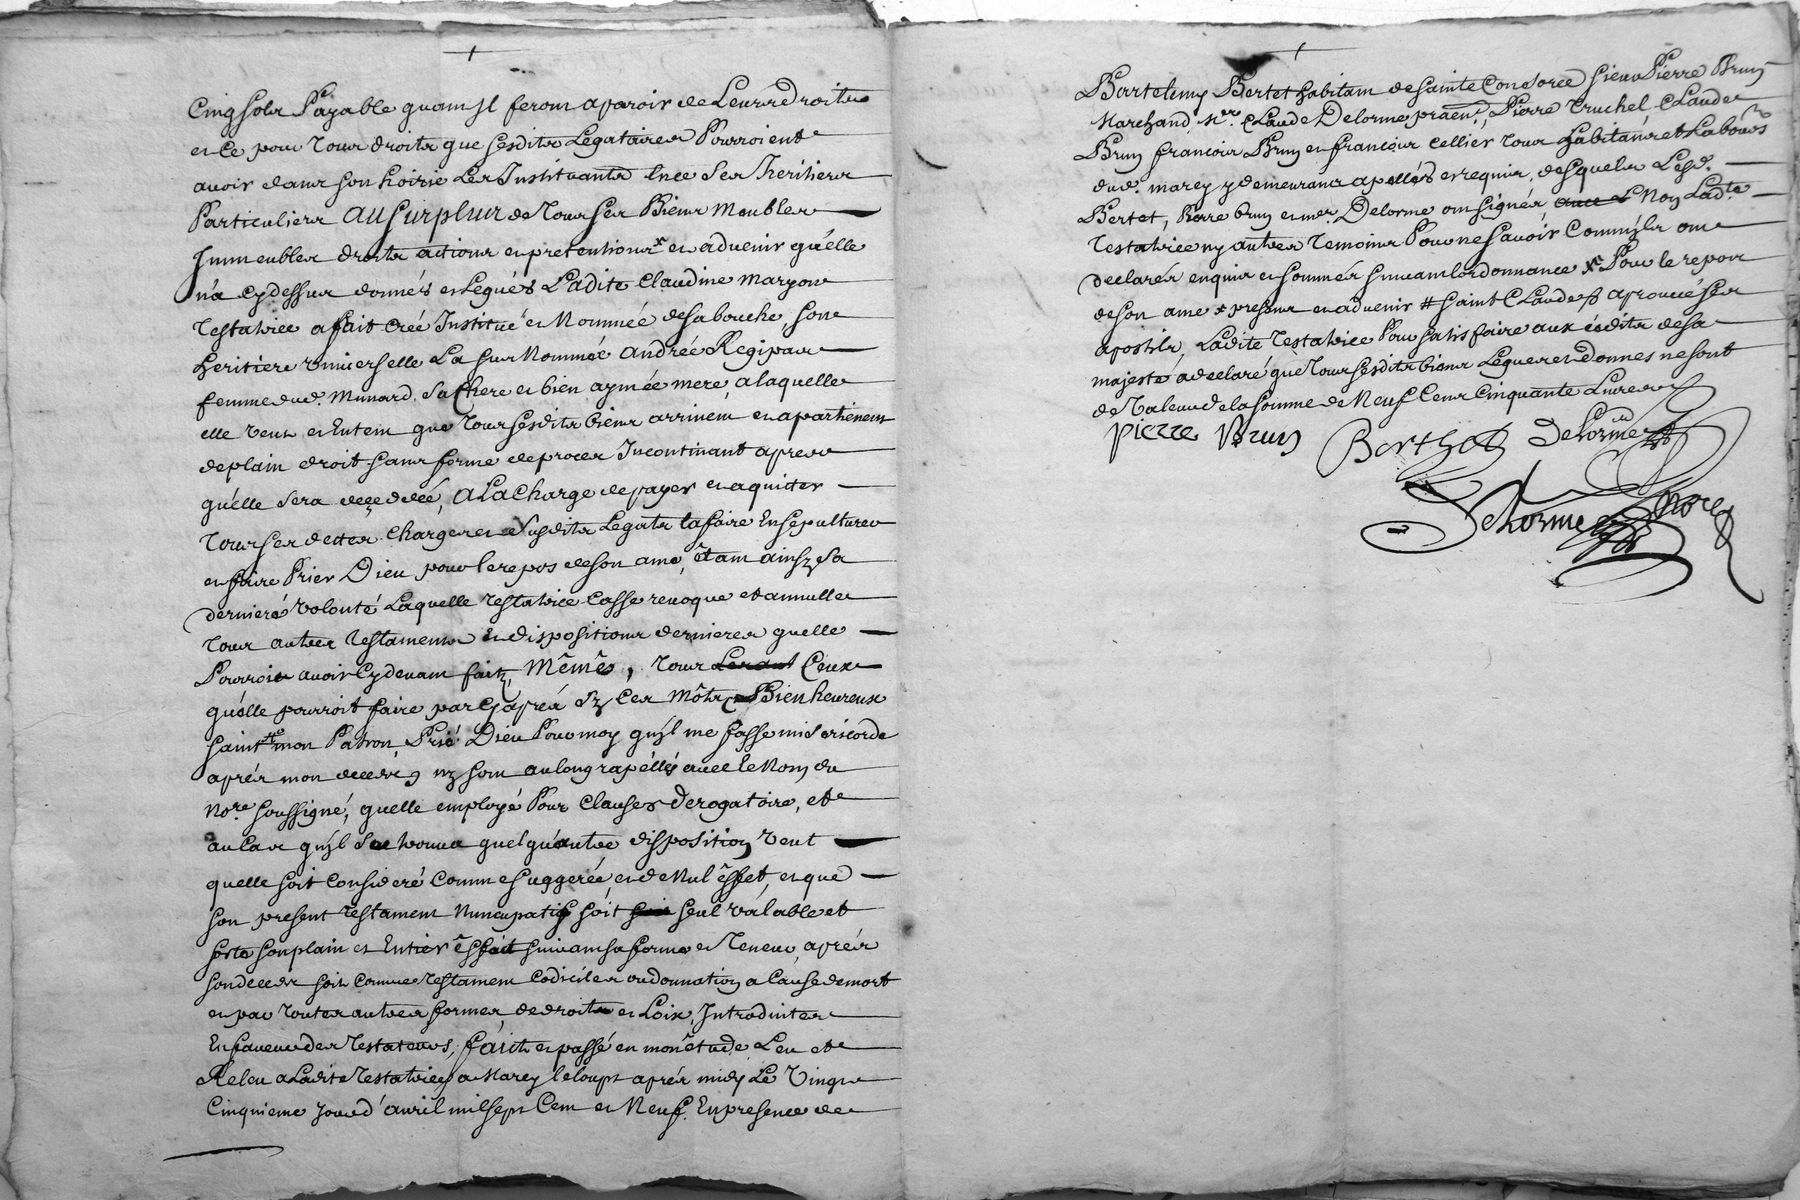 Cinq sols Payable quant Il feront aparoir de Leurs Droits
et Ce pour tous droits que sesdits Legataires Pourroient
avoir dans son hoirie Les Instituants En ce Ses Heritiers
Particuliers Au surplus de Tous Ses Biens Meubles
Immeubles droits actions et pretentions x et advenir qu'elle
n'a Cydessus donnés et Legués Ladite Claudine Maryon
Testatrice a fait Créé Institué et Nommée de sa bouche, son
heritiere universelle La surnommée Andrée Regipas
femme dud. Munard Sa Chere et bien aymée mere, a laquelle
elle veut et Entent que tous sesdits biens arrivent et apartienent
de plain droit sans forme de proces Incontinant apres
qu'elle sera decedée, A La Charge de payer et aquitter
tous ses dettes charges et susdits Legats la faire Ensepulturer
et faire Prier Dieu pour le repos de son ame, êtant ainsy Sa
derniere Volonté Laquelle testatrice Casse revoque et annulle
tous autres testaments et dispositions dernieres quelle
Pourroit avoir Cydevant fait, Mêmes, tous Ceux
qu'elle pourroit faire par Cy aprés Sy Ces Môts Bienheureux
Saint # mon Patron Prié Dieu Pour moy qu'Il me fasse misericorde
aprés mon decedé, ny sont au long rapéllés avec le Nom du
No.re soussigné, quelle employé Pour Clauses derogatoire, et
au Cas qu'Il Se trouva quelqu'autre disposition Veut
quelle soit Consideré Comme suggerée, et de Nul êffet, et que
son present testament Nuncupatif soit seul valable et
sorte son plain et Entier êffait suivant sa forme et Teneur, aprés
son deces soit comme testament Codicile ou donnation a Cause de mort
et par toutes autres formes, de droits et Loix, Introduites
En faveur des testateurs, fait et passé en mon êtude Leu et
Releu a Ladite testatrice a Marcy le loup aprés midy Le Vingt
Cinquieme Jour d'avril mil sept Cent et Neuf. En presence de
Bartelemy Bertet habitant de Sainte Consorce Sieur Pierre Brun
Marchand Mre. Claude Delorme praen., Pierre Truchet Claude
Brun francois Brun et francois Cellier tous habitants et Labours
dud. marcy y demeurans apellés et requis, desquels Lesd.
Bertet, Pierre brun et mre Delorme ont signés Non Lad.te
testatrice ny autres temoins Pour ne Savoir Comm'Ils ont
declarés enquis et sommés suivant lordonnance x Pour le repos
de son ame x presens et advenir # saint Claude, aprouvé Ses
apostils, Ladite Testatrice Pour satisfaire aux édits de sa
majesté a declaré que Tous sesdits biens Legués et donnes ne sont
de Valeur de la somme de Neuf Cens Cinquante Livres
Pierre Brun Berthet Delorme
Delorme nore